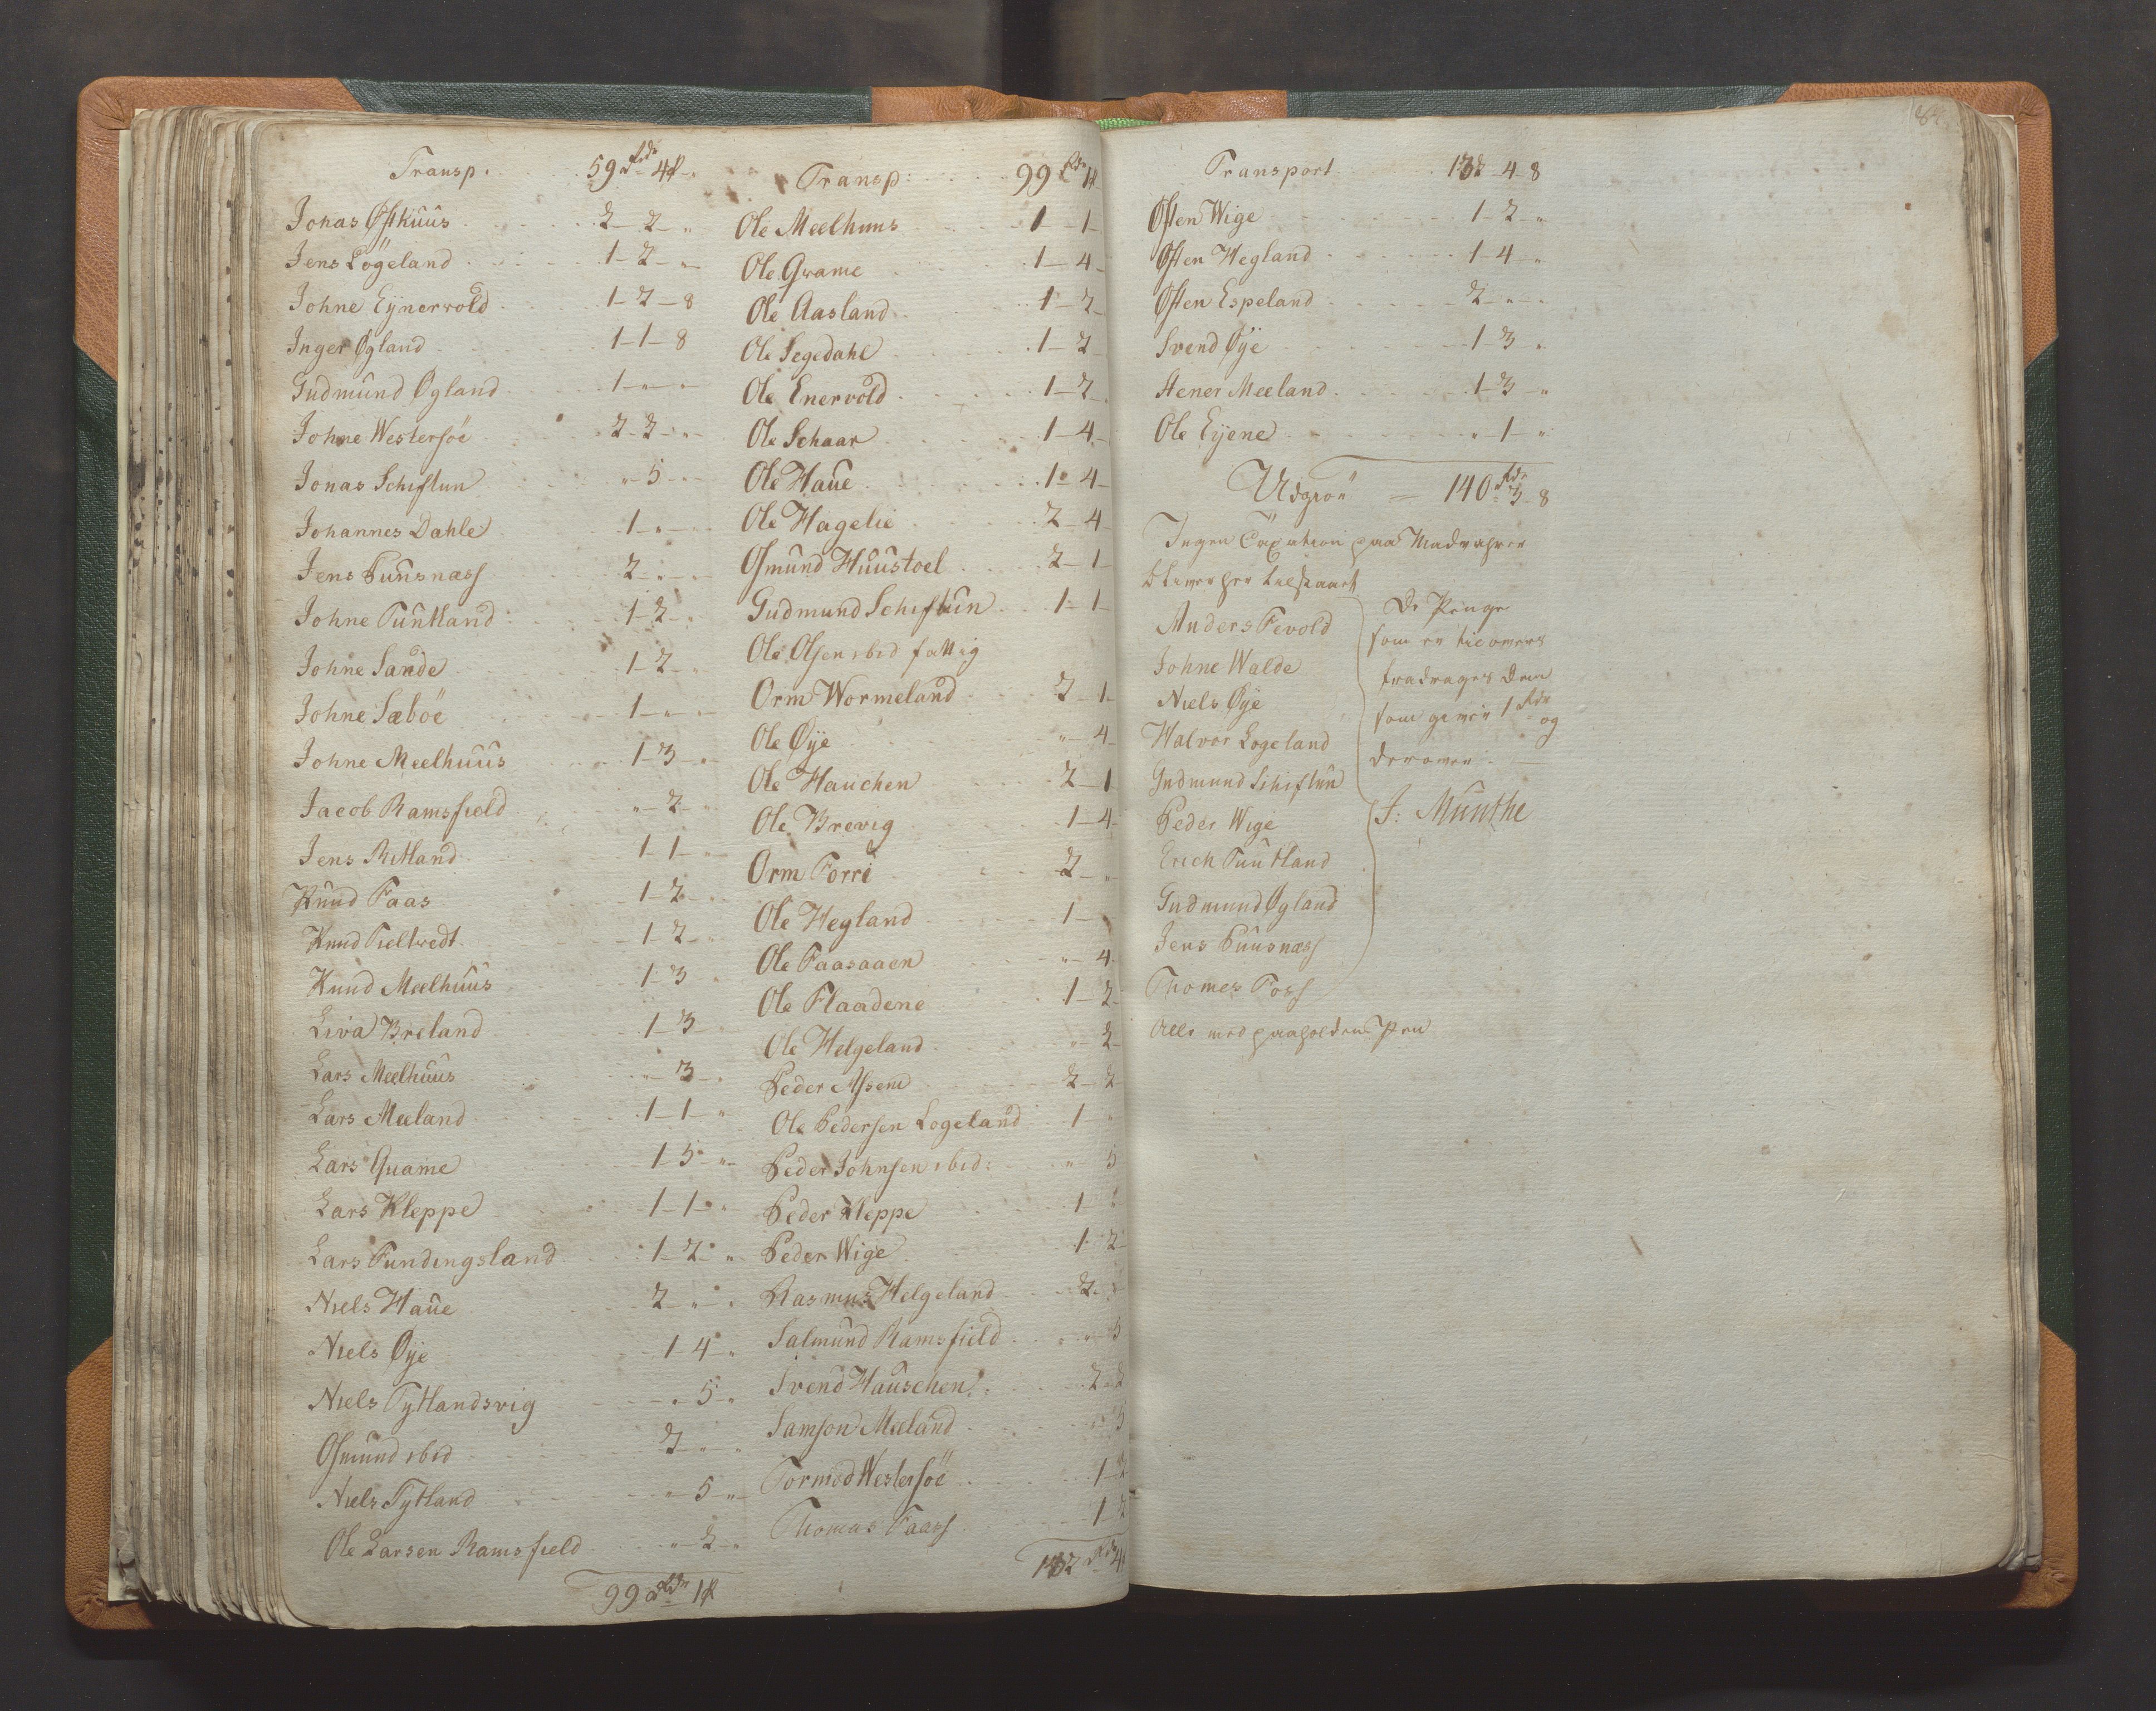 Transp. 59 Rdr 4 ß
Jonas Østhuus 2 - 2 - "
Jens Løgeland 1 - 2 - "
Johne Eÿnervold 1 - 2 - 8
Inger Øgland 1 - 1 - 8
Gudmund Øgland 1 - " - "
Johne Westersöe 2 - 2 - "
Jonas Schiftun " - 5 - "
Johannes Dahle 1 - " - "
Jens Puusnæss 2 - " - "
Johne Tuntland 1 - 2 - "
Johne Sande 1 - 2 - "
Johne Sæböe 1 - " - "
Johne Meelhuus 1 - 3 - "
Jacob Ramsfield " - 2 - "
Jens Ritland 1 - 1 - "
Knud Faas 1 - 2 - "
Knud Tieltvedt 1 - 2 - "
Knud Meelhuus 1 - 3 - "
Liva Breland 1 - 3 - "
Lars Meelhuus " - 3 - "
Lars Meeland 1 - 1 - "
Lars Quame 1 - 5 - "
Lars Kleppe 1 - 1 - "
Lars Fundingsland 1 - 2 - "
Niels Haue 2 - " - "
Niels Øÿe 1 - 4 - "
Niels Tytlandsvig " - 5 - "
Osmund ibid 2 - " - "
Niels Tytland " - 5 - "
Ole Larsen Ramsfield " - 2 - "
99 Rdr 1 ß
Transp: 99 Rdr 1 ß
Ole Meelhuus 1 - 1 -
Ole Qvame 1 - 4 -
Ole Aasland 1 - 2 -
Ole Segedahl 1 - 2 -
Ole Enervold 1 - 2 -
Ole Schaar 1 - 4 -
Ole Haue 1 - 4 -
Ole Hagelie 2 - 4 -
Osmund Huustoel 2 - 1 -
Gudmund Schiftun 1 - 1 -
Ole Olsen ibid fattig
Orm Wormeland 2 - 1 -
Ole Øÿe " - 4 -
Ole Hauchen 2 - 1
Ole Brevig 1 - 4
Orm Forre 2 - "
Ole Hegland 1 -
Ole Faasaaen " - 4
Ole Flaadene 1 - 2
Ole Helgeland " - 2
Peder Assem 2 - 2
Ole Pedersen Logeland 1 "
Peder Johnsen ibid: " 5
Peder Kleppe 1
Peder Wige 1 2
Rasmus Helgeland 2 -
Salmund Ramsfield " - 5
Svend Hauschen 2 - 2
Samson Meeland " 5
Tormod Westersöe 1 - 2
Thomas Faass 1 - 2
132 Rdr 4
Transport 132 - 4 - 8
Østen Wige 1 - 2 - "
Østen Hegland 1 - 4 - "
Østen Espeland 2 - " - "
Svend Øÿe 1 - 3 - "
Stener Meeland 1 - 3 - "
Ole Eÿene " - 1 - "
Udgiör = 140 Rdr 3 - 8
Ingen Taxation paa Madvahrer
bliver her tilstaaet
Anders Fevold
Johne Walde
Niels Øÿe
Halvor Logeland
Gudmund Schiftun
Peder Wige
Erich Tuntland
Gudmund Øgland
Jens Puusnæss
Thomes Foss
Alle med paaholden Pen
De Penge
som er tilovers
fradrages dem
som giver 1 Rdr og
derover.
J: Munthe